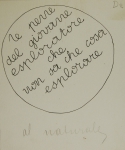 le pene
del giovane
esploratore
che
non sa che cosa
esplorare
al naturale